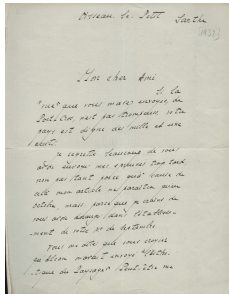 Oiseau le Petit Sarthe
[1932]
Mon cher Ami
Si la
"vue" que vous m'avez envoyée, de
Port-Cros, n'est pas trompeuse, votre
pays est digne des mille et une
nuits.
Je regrette beaucoup de vous
avoir envoyé mes épreuves trop tard,
non pas tant parce que à cause de
cela mon article ne paraîtra qu'en
octobre, mais parce que je crains de
vous avoir dérangé dans l'établisse-
ment de votre n° de septembre.
Vous me dites que vous croyez
qu' m'avait envoyé
du Paysage? Peut-être me